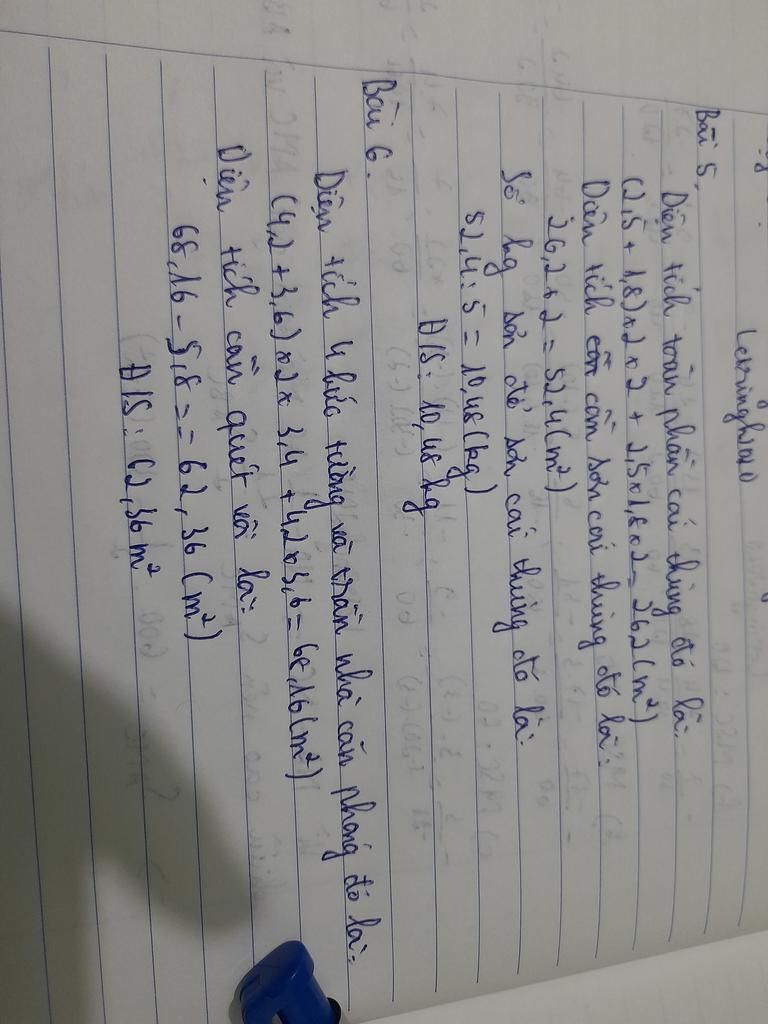 Bài 5.
Diện tích toàn phần cái thùng đó là:
(2,5 + 1,8) x 2 x 2 + 2,5 x 1,8 x 2 = 26,2 (m²)
Diện tích cần sơn cái thùng đó là:
26,2 x 2 = 52,4 (m²)
Số kg sơn để sơn cái thùng đó là:
52,4 : 5 = 10,48 (kg)
Đ/S: 10,48 kg
Bài 6.
Diện tích 4 bức tường và trần nhà căn phòng đó là:
(4,2 + 3,6) x 2 x 3,4 + 4,2 x 3,6 = 68,16 (m²)
Diện tích cần quét vôi là:
68,16 - 5,8 = = 62,36 (m²)
Đ/S: 62,36 m²